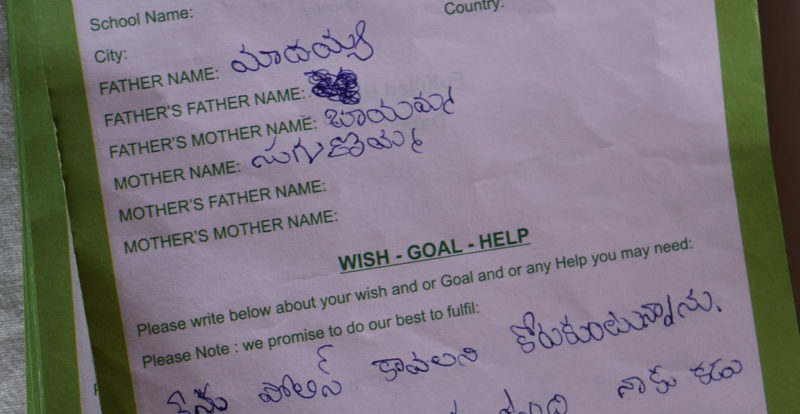 School Name:
Country:
City:
FATHER NAME: మాదయ్య
FATHER'S FATHER NAME:
FATHER'S MOTHER NAME: బూయమ్మ
MOTHER NAME: సుగుణమ్మ
MOTHER'S FATHER NAME:
MOTHER'S MOTHER NAME:
WISH - GOAL - HELP
Please write below about your wish and or Goal and or any Help you may need:
Please Note : we promise to do our best to fulfil:
నేను పోలీస్ కావలని కోరుకుంటున్నాను.
నాకు